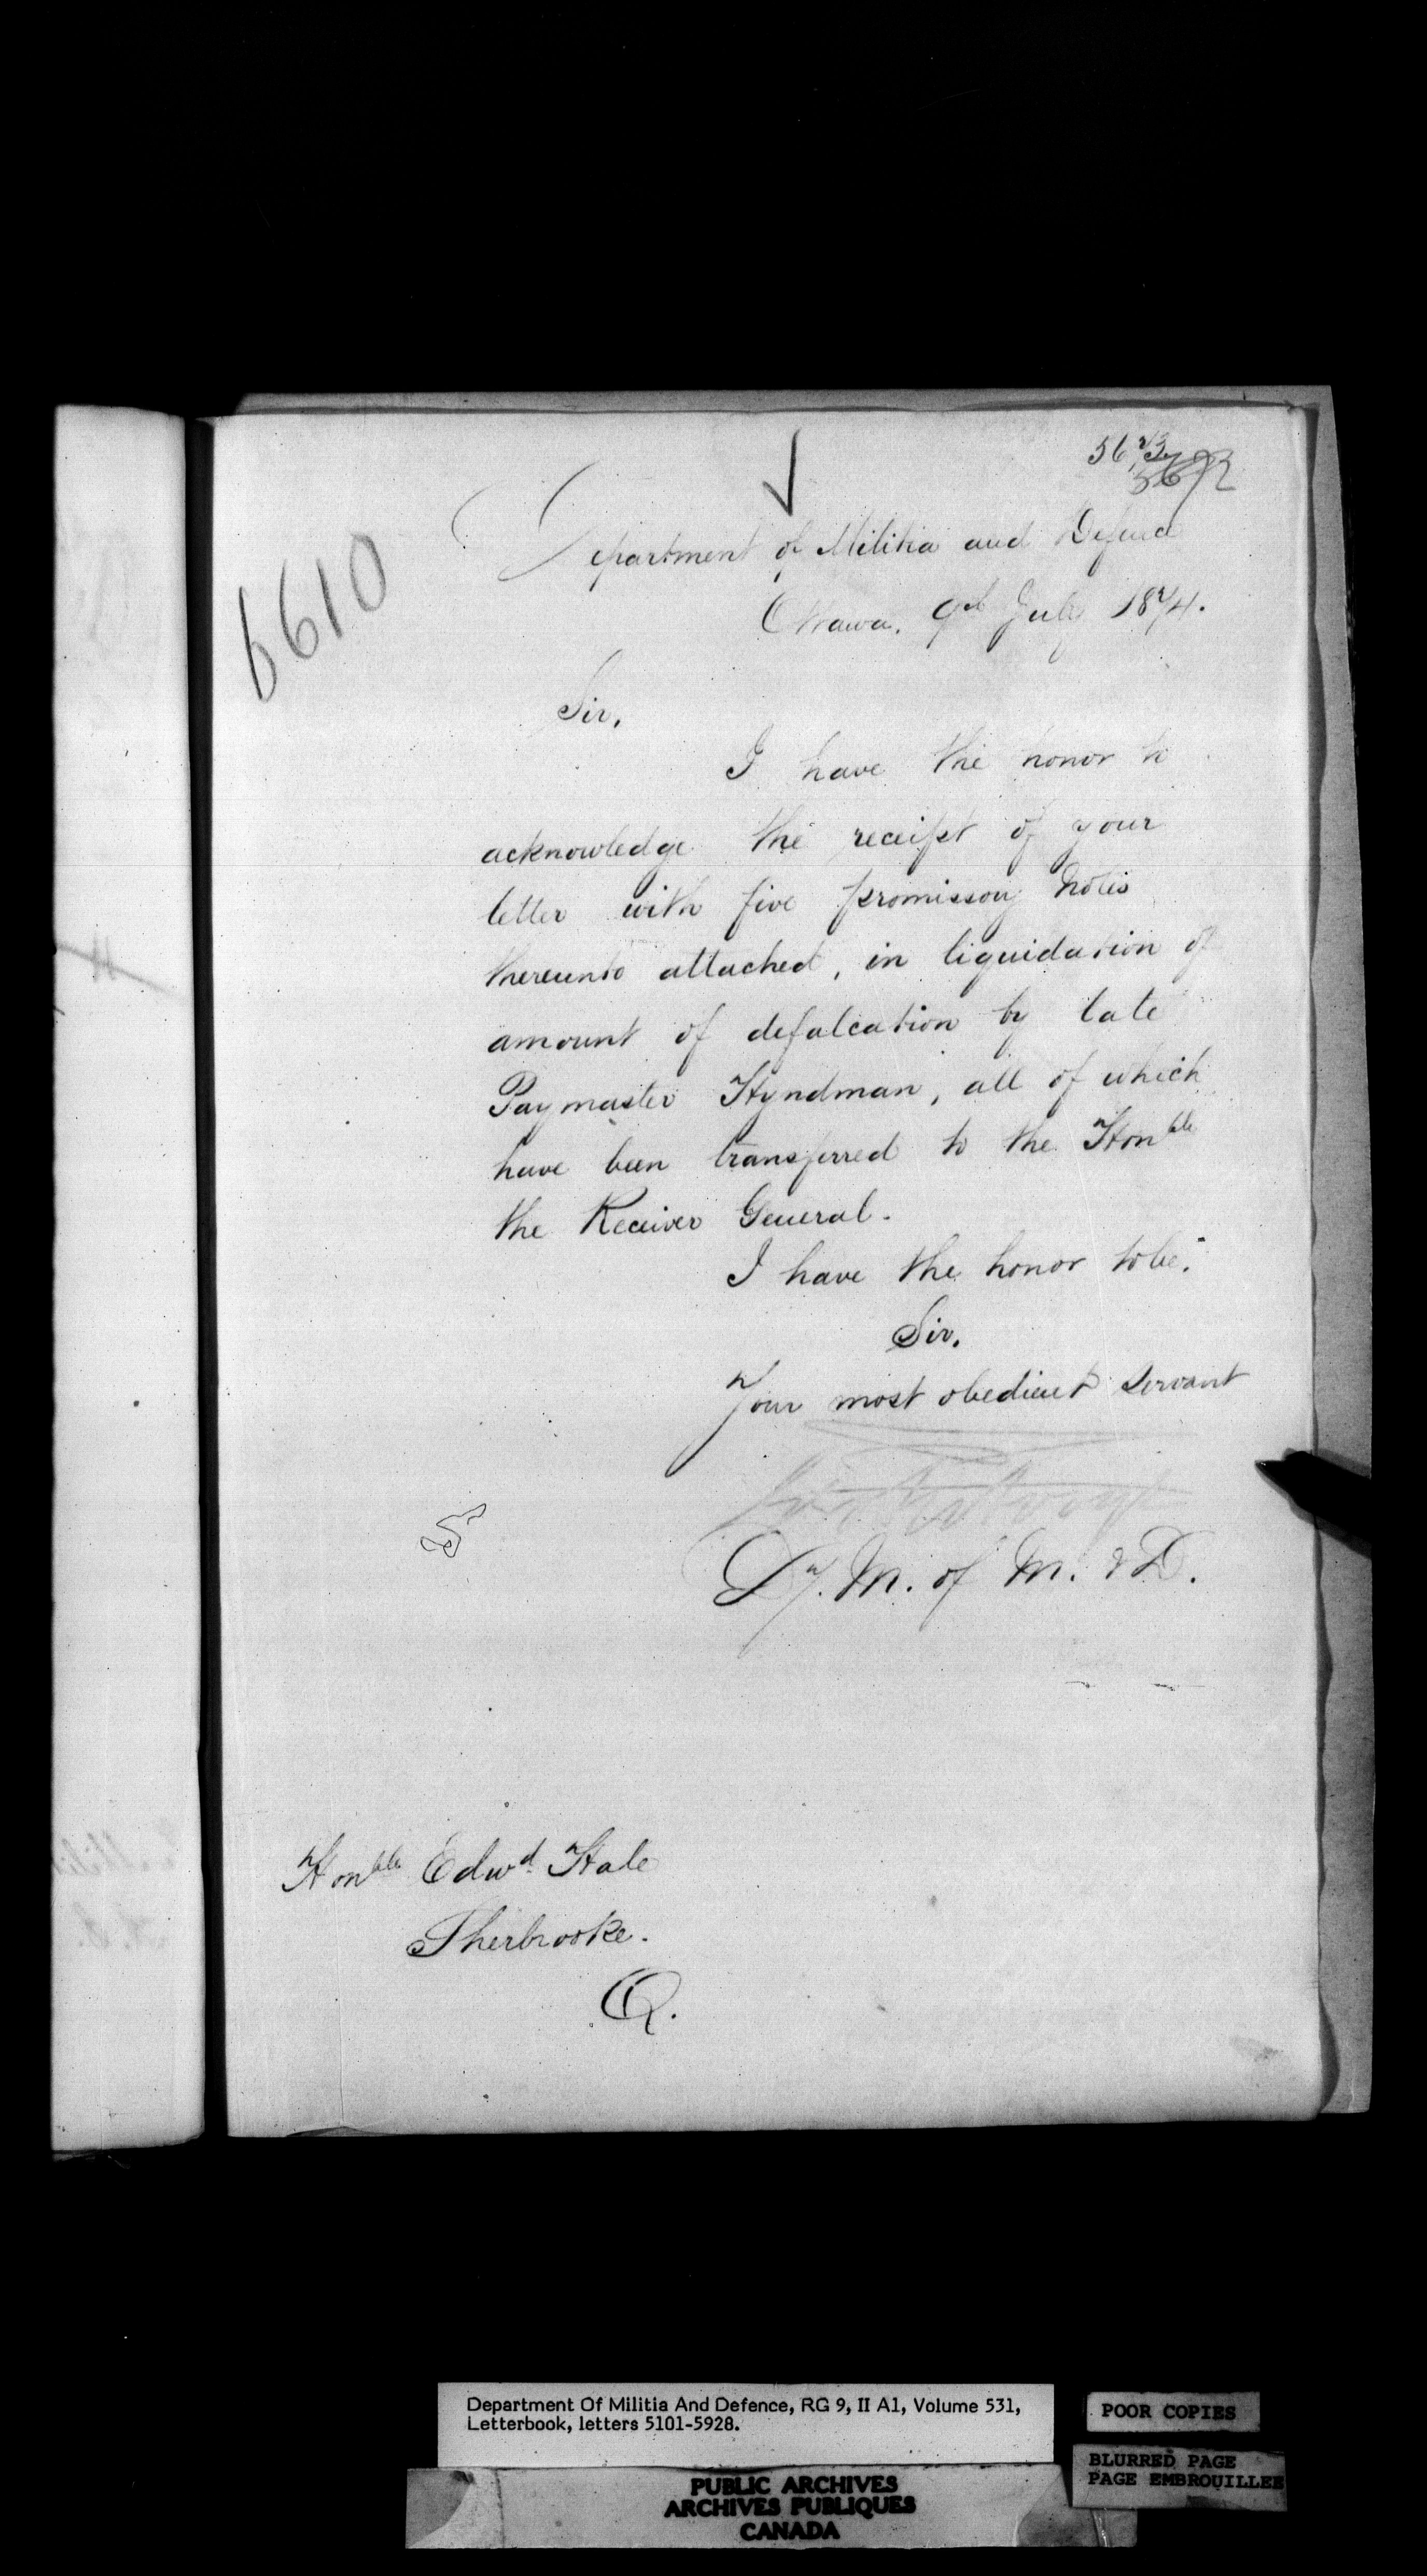 5673
5672
6610
Department of Militia and Defence
Ottawa. 9th July 1874.
Sir,
I have the honor to
acknowledge the receipt of your
letter with five promissory notes
thereunto attached, in liquidation of
amount of defalcation by late
Paymaster Hyndman, all of which
have been transferred to the Honble
the Receiver General.
I have the honor to be.
Sir,
Your most obedient servant
Dy. M. of M. & D.
Honble Edwd Hale
Sherbrooke.
Q.
Department Of Militia And Defence, RG 9, II A1, Volume 531,
Letterbook, letters 5101-5928.
POOR COPIES
BLURRED PAGE
PAGE EMBROUILLEE
PUBLIC ARCHIVES
ARCHIVES PUBLIQUES
CANADA